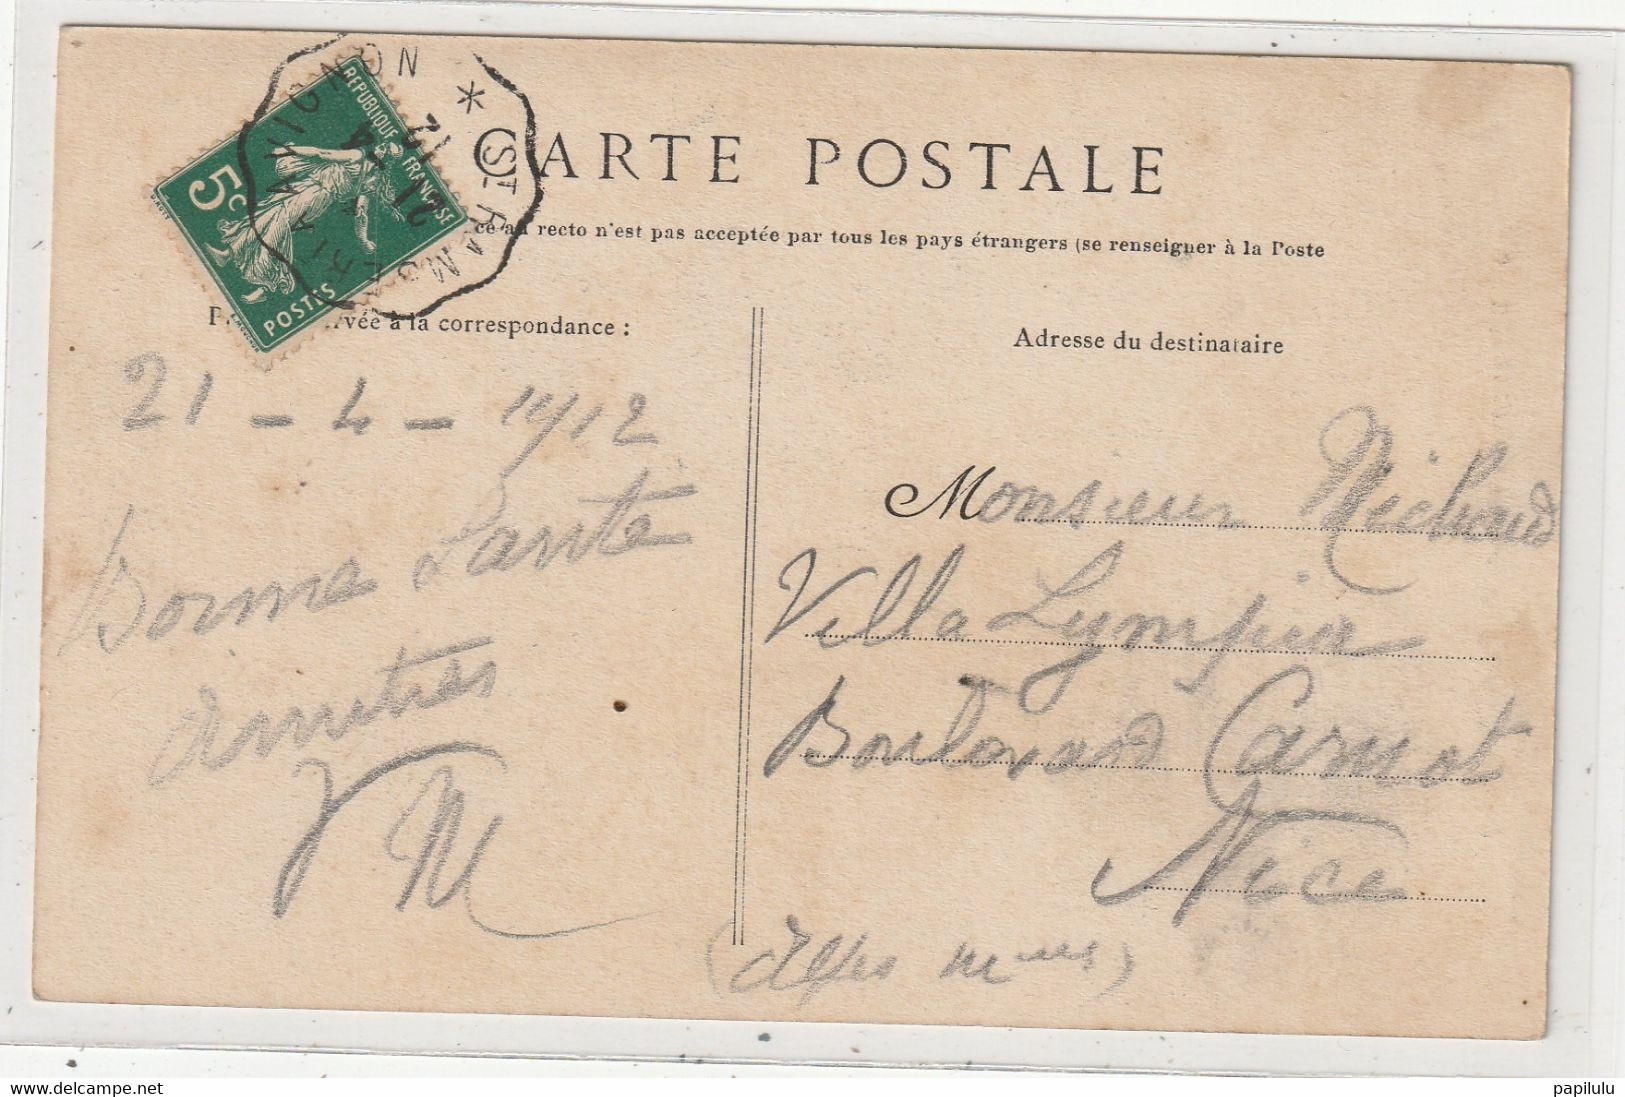 CARTE POSTALE
ce au recto n'est pas acceptée par tous les pays étrangers (se renseigner à la Poste
à la correspondance :
Adresse du destinataire
RÉPUBLIQUE FRANÇAISE
5c
POSTES
ST RAMBERT A AVIGNON *
21 - 4
12
21 - 4 - 1912
Bonne Santé
amitiés
VM
Monsieur Michaud
Villa Lympia
Boulevard Carnot
Nice
(Alpes Mmes)
www.delcampe.net
papilulu